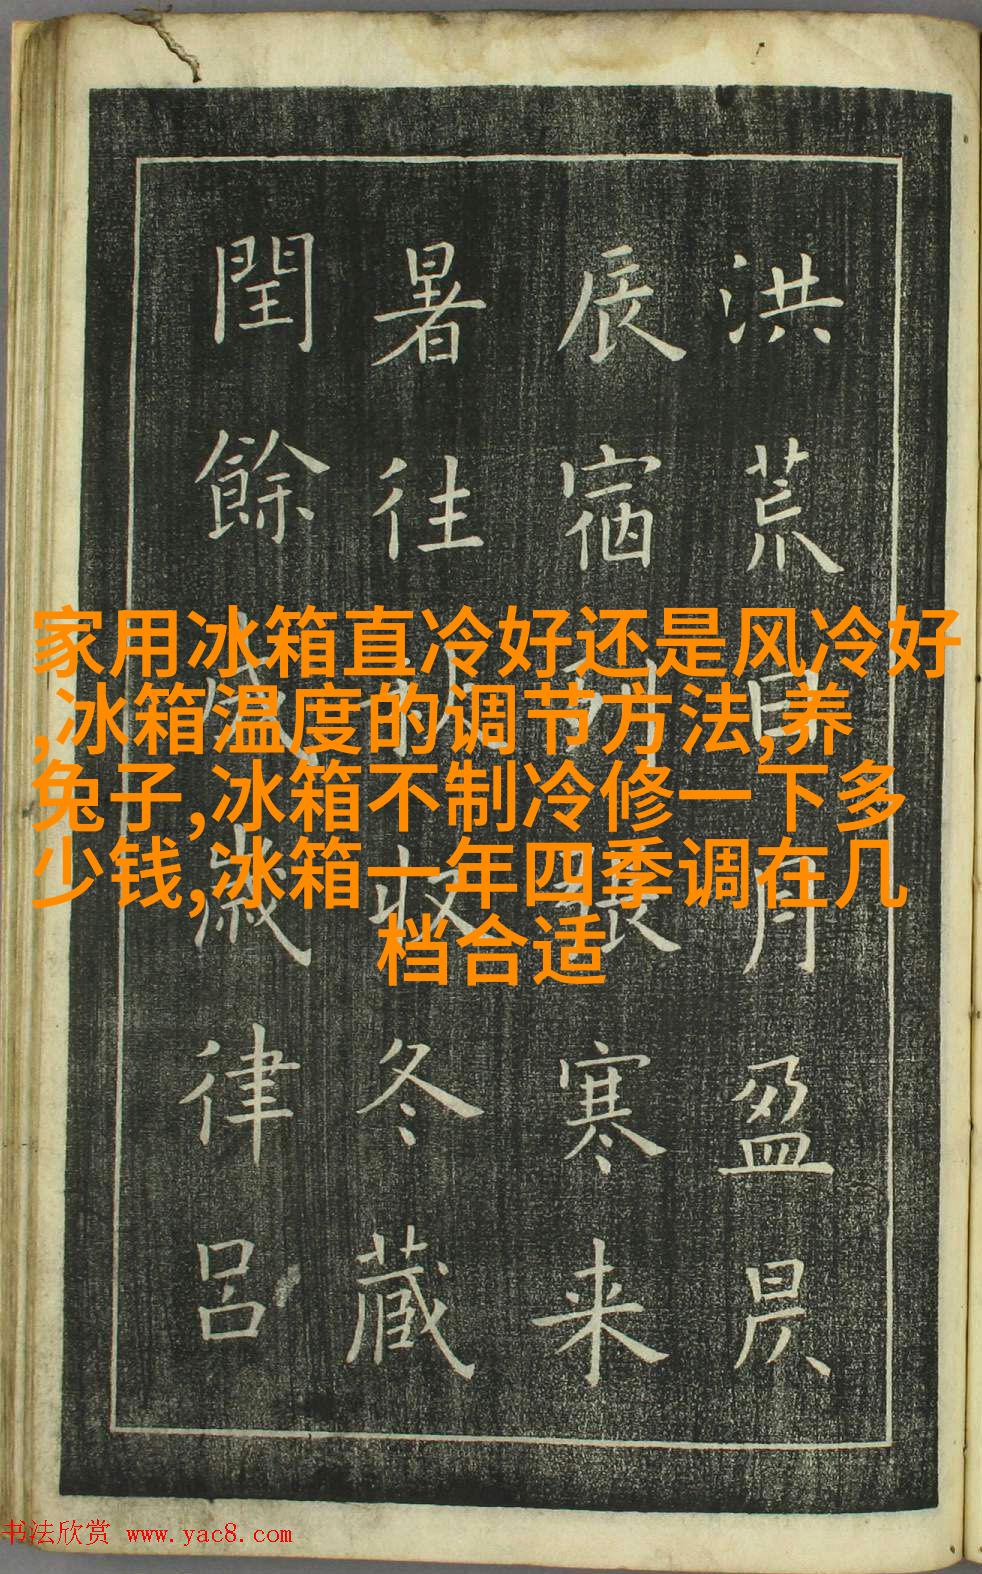 洪荒日月盈昃
辰宿張寒来
暑往收冬藏
閏餘成歲律呂
家用冰箱直冷好还是风冷好
,冰箱温度的调节方法,养
兔子,冰箱不制冷修一下多
少钱,冰箱一年四季调在几
档合适
书法欣赏 www.yac8.com